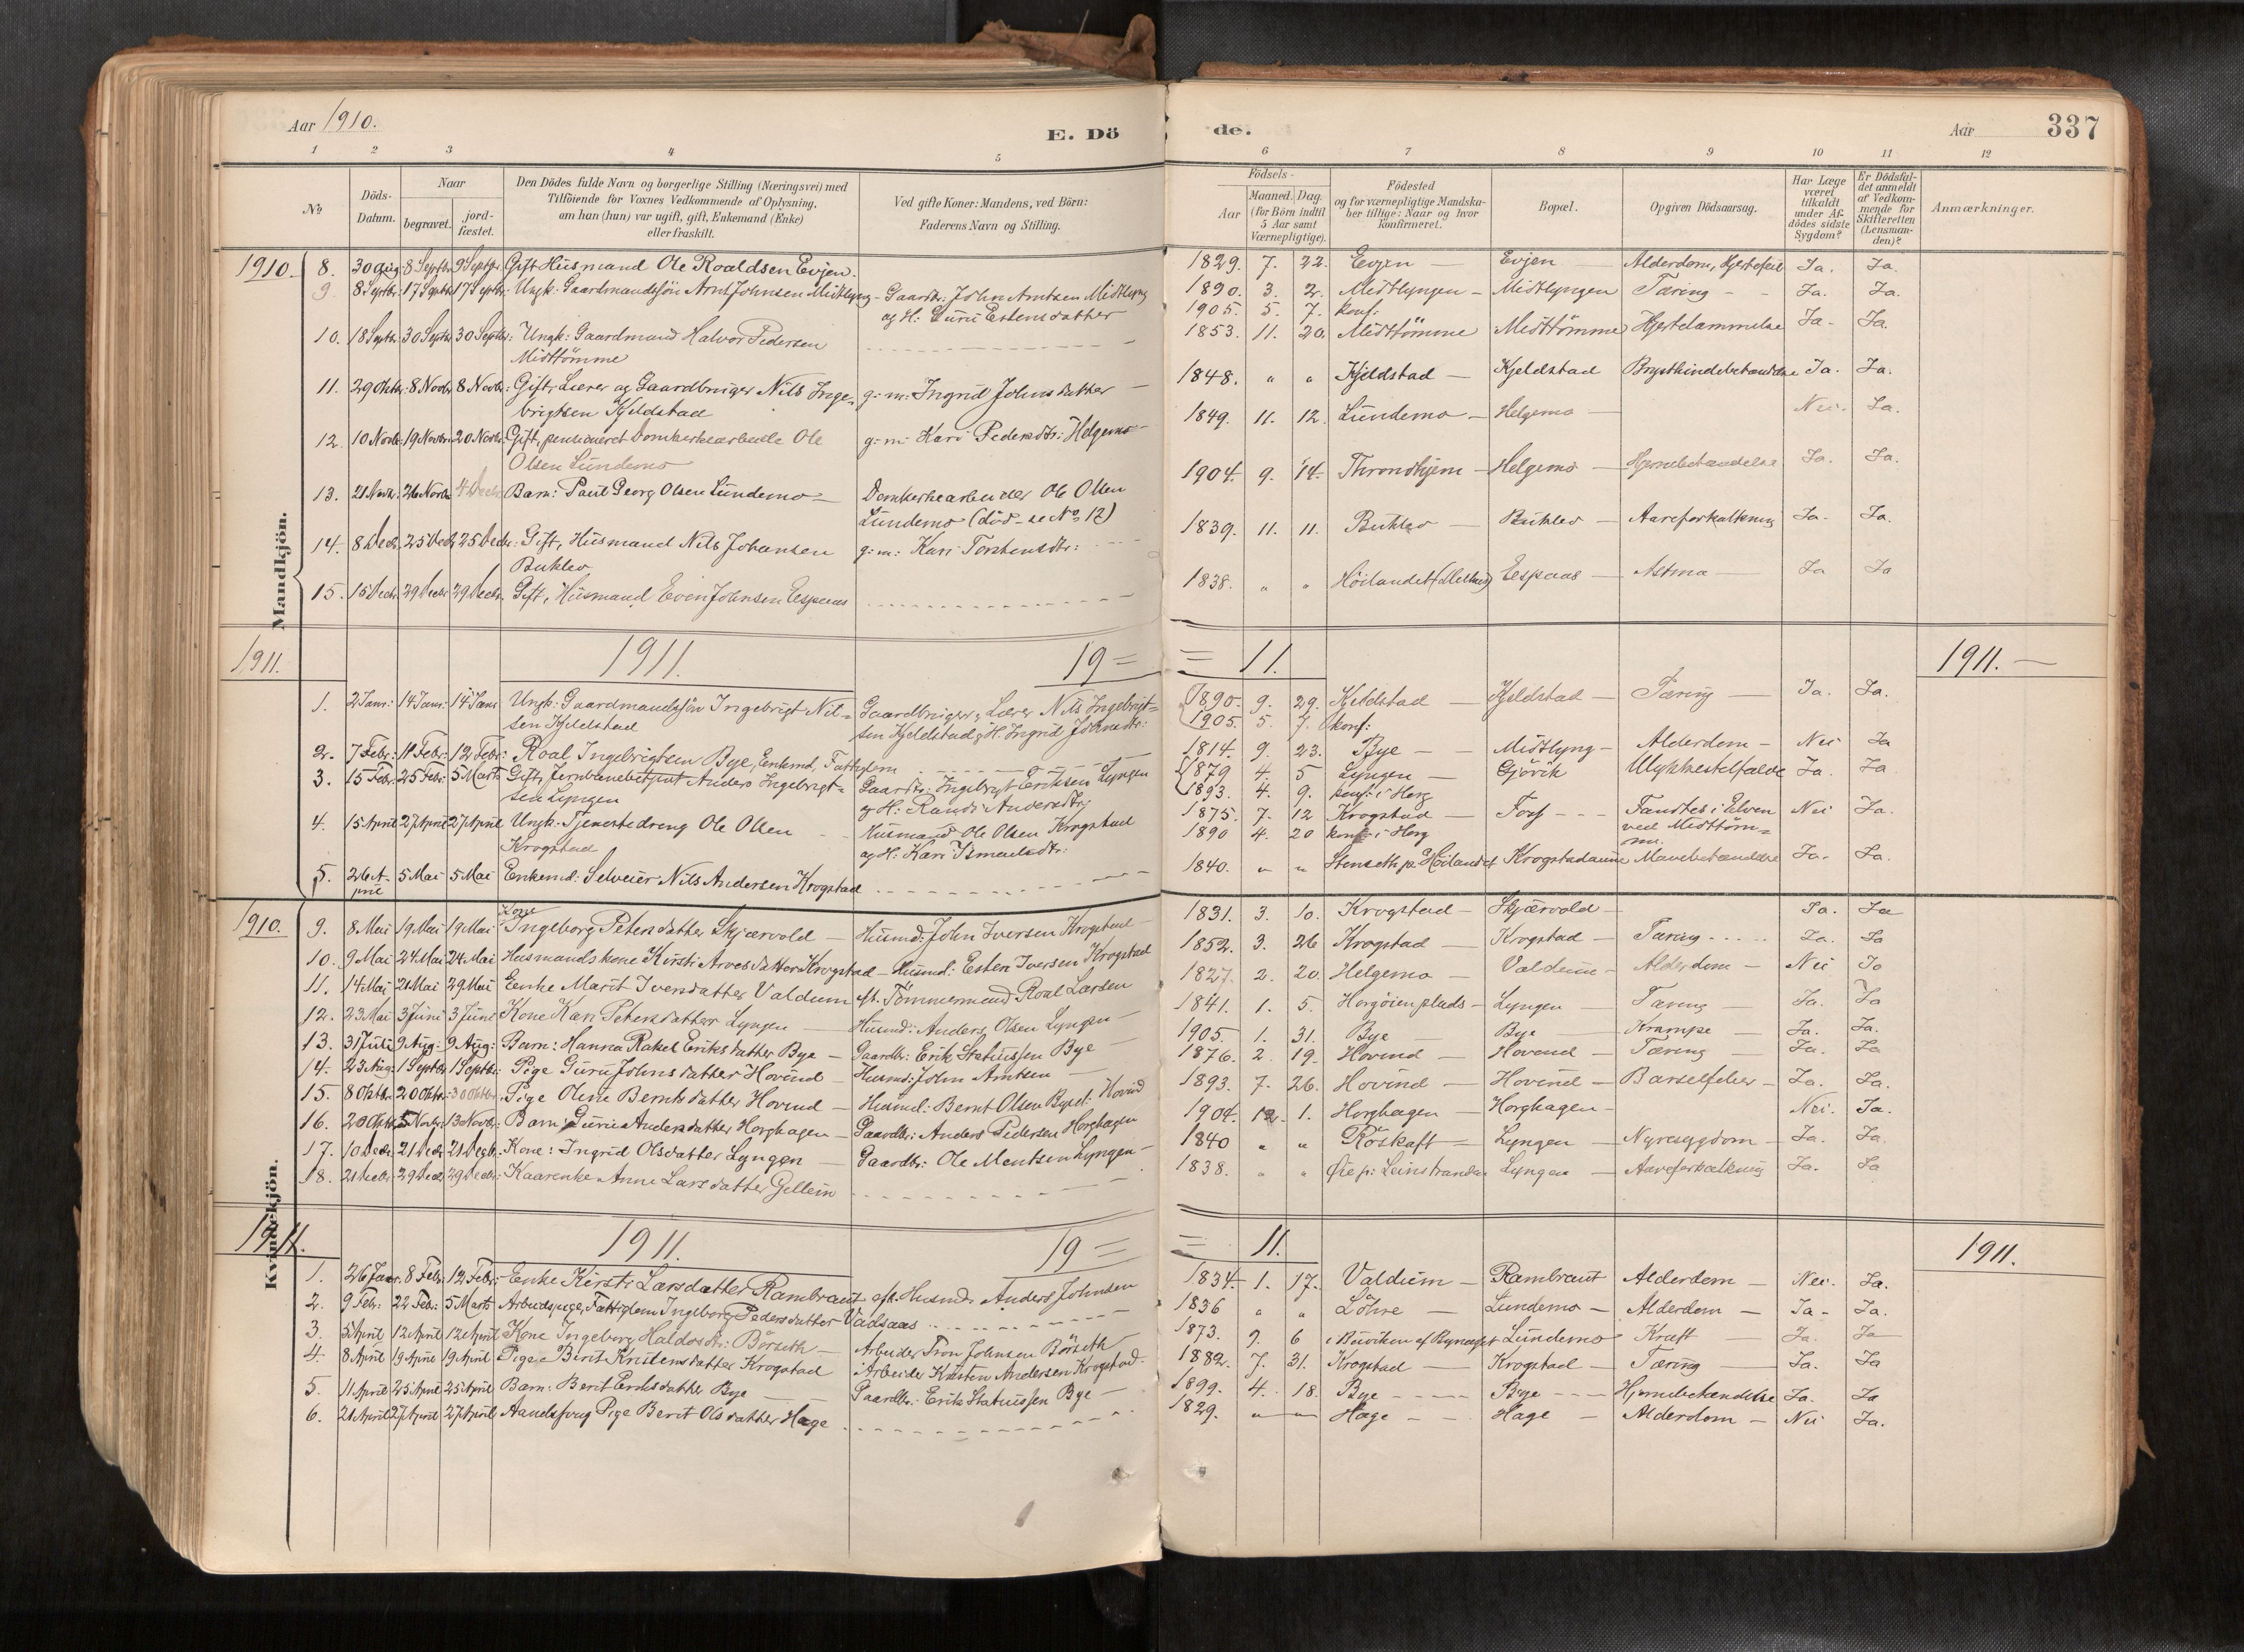 Aar 1910.
E. Dö
de.
Aar
337
1 2 3 4 5 6 7 8 9 10 11 12
No
Döds-Datum.
Naar
begravet.
jord-fæstet.
Den Dödes fulde Navn og borgerlige Stilling (Næringsvei) med
Tilföiende for Voxnes Vedkommende af Oplysning,
om han (hun) var ugift, gift, Enkemand (Enke)
eller fraskilt.
Ved gifte Koner: Mandens, ved Börn:
Faderens Navn og Stilling.
Födsels-
Aar
Maaned. Dag.
(for Börn indtil
5 Aar samt
Værnepligtige).
Födested
og for værnepligtige Mandska-
ber tillige: Naar og hvor
Konfirmeret.
Bopæl.
Opgiven Dödsaarsag.
Har Læge
været
tilkaldt
under Af-
dödes sidste
Sygdom?
Er Dödsfal-
det anmeldt
af Vedkom-
mende for
Skifteretten
(Lensman-
den)?
Anmærkninger.
Mandkjön.
1910. 8. 30 Aug. 8 Septbr. 9 Septbr. Gift Husmand Ole Roaldsen Evjen. 1829. 7. 22. Evjen — Evjen — Alderdom, Hjertefeil Ja. Ja.
9 8 Septbr. 17 Septbr. 17 Septbr: Ungk: Gaardmandssön Arnt Johnsen Midtlyng - Gaardbr: John Arntsen Midtlyng 1890. 3. 2. Midtlyngen - Midtlyngen Tæring - - Ja. Ja.
og H: Guru Estensdatter 1905. 5. 7. konf:
10. 18 Septbr. 30 Septbr. 30 Septbr: Ungk: Gaardmand Halvor Pedersen 1853. 11. 20. Midttömme Midttömme Hjertelammelse Ja - Ja.
Midttömme
11. 29 Oktbr. 8 Novbr. 8 Novbr: Gift, Lærer og Gaardbruger Nils Inge- g: m: Ingrid Johnsdatter — 1848. " " Kjeldstad — Kjeldstad Brysthindebetændelse Ja. Ja.
brigtsen Kjeldstad
12. 10 Novbr. 19 Novbr. 20 Novbr: Gift, pensioneret Domkirkearbeide Ole g: m: Kari Pedersdtr: Helgemo — 1849. 11. 12. Lundemo — Helgemo — Nei. Ja.
Olsen Lundemo
13. 21 Novbr: 26 Novbr. 4 Decbr. Barn: Paul Georg Olsen Lundemo — Domkirkearbeider Ole Olsen 1904. 9. 14. Throndhjem — Helgemo — Hjernebetændelse Ja. Ja.
Lundemo (död - se No 12)
14. 8 Decbr. 25 Decbr. 25 Decbr: Gift, Husmand Nils Johansen g: m: Kari Torstensdtr: 1839. 11. 11. Buklev — Buklev — Aareforkalkning Ja. Ja.
Buklev
15. 15 Decbr. 29 Decbr. 29 Decbr. Gift, Husmand Even Johnsen Espaas 1838. " " Höilandet (Melhus) Espaas — Astma — Ja Ja
1911. 1911. 19 = = 11. 1911. —
1. 2 Jan: 14 Jan: 14 Jan: Ungk: Gaardmandssön Ingebrigt Nil= Gaardbruger, Lærer Nils Ingebrigt= 1890. 9. 29. Kjeldstad — Kjeldstad — Tæring — Ja. Ja.
sen Kjeldstad sen Kjeldstad, H: Ingrid Johnsdtr: 1905. 5. 7. konf:
2. 7 Febr: 11 Febr: 12 Febr: Roal Ingebrigtsen Bye, Enkemd, Fattiglem 1814. 9. 23. Bye — Midtlyng — Alderdom — Nei Ja
3. 15 Febr. 25 Febr: 5 Marts Gift, Jernbanebetjent Anders Ingebrigt= Gaardbr: Ingebrigt Eriksen Lyngen 1879 4. 5 Lyngen — Gjövik Ulykkestilfælde Ja. Ja
sen Lyngen og H: Randi Andersdtr: 1893. 4. 9. konf: i Horg
4. 15 April 27 April 27 April Ungk: Tjenestedreng Ole Olsen Husmand Ole Olsen Krogstad 1875. 7. 12 Krogstad — Foss — Fandtes i Elven Nei Ja.
Krogstad og H: Kari 1890 4. 20 konf: i Horg ved Midttöm=
me.
5. 26 April 5 Mai 5 Mai Enkemd: Selveier Nils Andersen Krogstad 1840. " " Stenseth p. Höilandet Krogstadaune Mavebetændelse Ja. Ja.
Kvindekjön.
1910. 9. 8 Mai 19 Mai 19 Mai Kone Ingeborg Petersdatter Skjærvold — Husmd: John Iversen Krogstad 1831. 3. 10. Krogstad — Skjærvold — Ja. Ja
10. 9 Mai 24 Mai 24 Mai Husmandskone Kirsti Arnesdatter Krogstad — Husmd: Esten Iversen Krogstad 1852. 3. 26 Krogstad — Krogstad — Tæring Ja. Ja
11. 14 Mai 21 Mai 29 Mai Enke Marit Iversdatter Valdum eft. Tömmermand Roal Larsen 1827. 2. 20. Helgemo — Valdum — Alderdom — Nei Ja
12. 23 Mai 3 Juni 3 Juni Kone Kari Petersdatter Lyngen — Husmd: Anders Olsen Lyngen — 1841. 1. 5. Horgöienplads — Lyngen — Tæring Ja. Ja
13. 31 Juli 9 Aug: 9 Aug: Barn: Hanna Rakel Eriksdatter Bye — Gaardbr: Erik Statiussen Bye — 1905. 1. 31. Bye — Bye — Krampe — Ja. Ja.
14. 23 Aug: 1 Septbr. 1 Septbr: Pige Guru Johnsdatter Hovind — Husmd: John Arntsen — 1876. 2. 19. Hovind — Hovind — Tæring — Ja. Ja
15. 8 Oktbr. 20 Oktbr: 30 Oktbr. Pige Oline Berntsdatter Hovind — Husmd: Bernt Olsen Hovind 1893. 7. 26. Hovind — Hovind — Barselfeber — Ja. Ja.
16. 29 Oktbr. 5 Novbr. 13 Novbr: Barn: Guru Andersdatter Horghagen — Gaardbr: Anders Pedersen Horghagen 1904. 12. 1. Horghagen — Horghagen — Nei. Ja.
17. 10 Decbr. 21 Decbr. 21 Decbr. Kone: Ingrid Olsdatter Lyngen — Gaardbr: Ole Mentsen Lyngen — 1840 " " Röskaft — Lyngen — Nyresygdom — Ja. Ja.
18. 21 Decbr. 29 Decbr. 29 Decbr: Kaarenke Anne Larsdatter Gellein 1838. " " Øie p. Leinstranden Lyngen — Aareforkalkning Ja. Ja
1911. 1911. 19 = = 11. 1911.
1. 26 Janr. 8 Febr. 12 Febr: Enke Kirsti Larsdatter Rambraut eft. Husmd: Anders Johnsen 1834. 1. 17. Valdum — Rambraut Alderdom — Nei. Ja.
2. 9 Febr: 22 Febr: 5 Marts Arbeidspige, Fattiglem Ingeborg Pedersdatter Vadsaas 1836 " " Löhre — Lundemo — Alderdom — Ja - Ja.
3. 5 April 12 April 12 April Kone Ingeborg Haldosdtr: Börseth — Arbeider Tron Johnsen Börseth 1873. 9. 6 i Buviken af Bynesset Lundemo Kræft — Ja. Ja —
4. 8 April 19 April 19 April Pige Berit Kristensdatter Krogstad Arbeider Kristen Andersen Krogstad. 1882. 7. 31. Krogstad — Krogstad — Tæring — Ja. Ja
5. 11 April 25 April 25 April Barn: Berit Eriksdatter Bye — Gaardbr: Erik Statiussen Bye — 1899. 4. 18. Bye — Bye — Hjernebetændelse Ja. Ja
6. 21 April 27 April 27 April Aandssvag Pige Berit Olsdatter Hage 1829. " " Hage — Hage — Alderdom — Nei Ja.